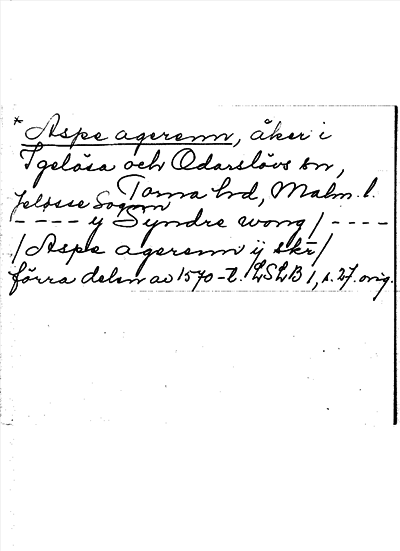 * Aspe agerenn, åker i
Igelösa och Odarslövs sn,
Torna hd, Malm. l.
Jeløsse Sognn
---- y Syndre wong / ----
/ Aspe agerenn ij skr /
förra delen av 1570-t. LSLB 1, s. 27. orig.